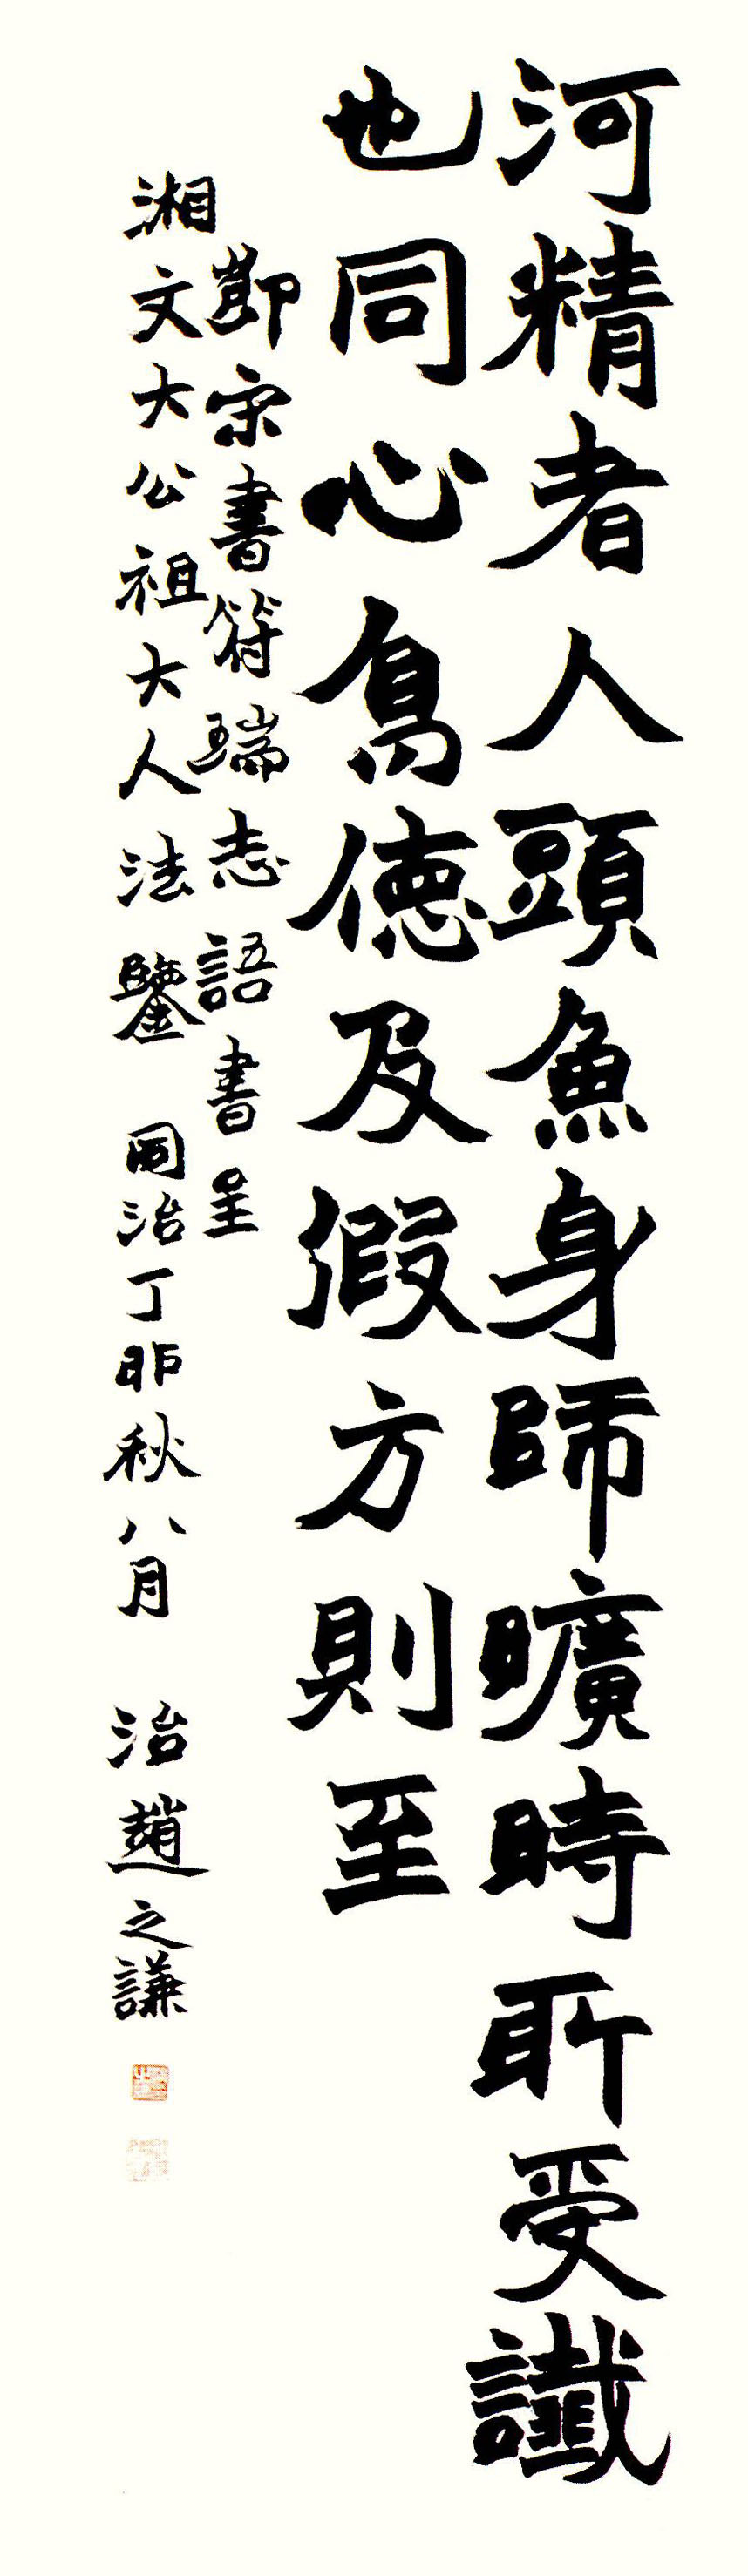 河精者人頭魚身師曠時所受讖
也同心鳥德及假方則至
節宋書符瑞志語書呈
湘文大公祖大人法鑒 同治丁卯秋八月 治趙之謙